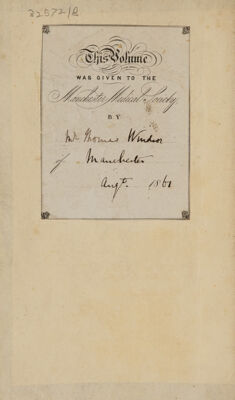 32572/B
This Volume
WAS GIVEN TO THE
Manchester Medical Society,
BY
Mr. Thomas Windsor
of Manchester
Augt. 1861